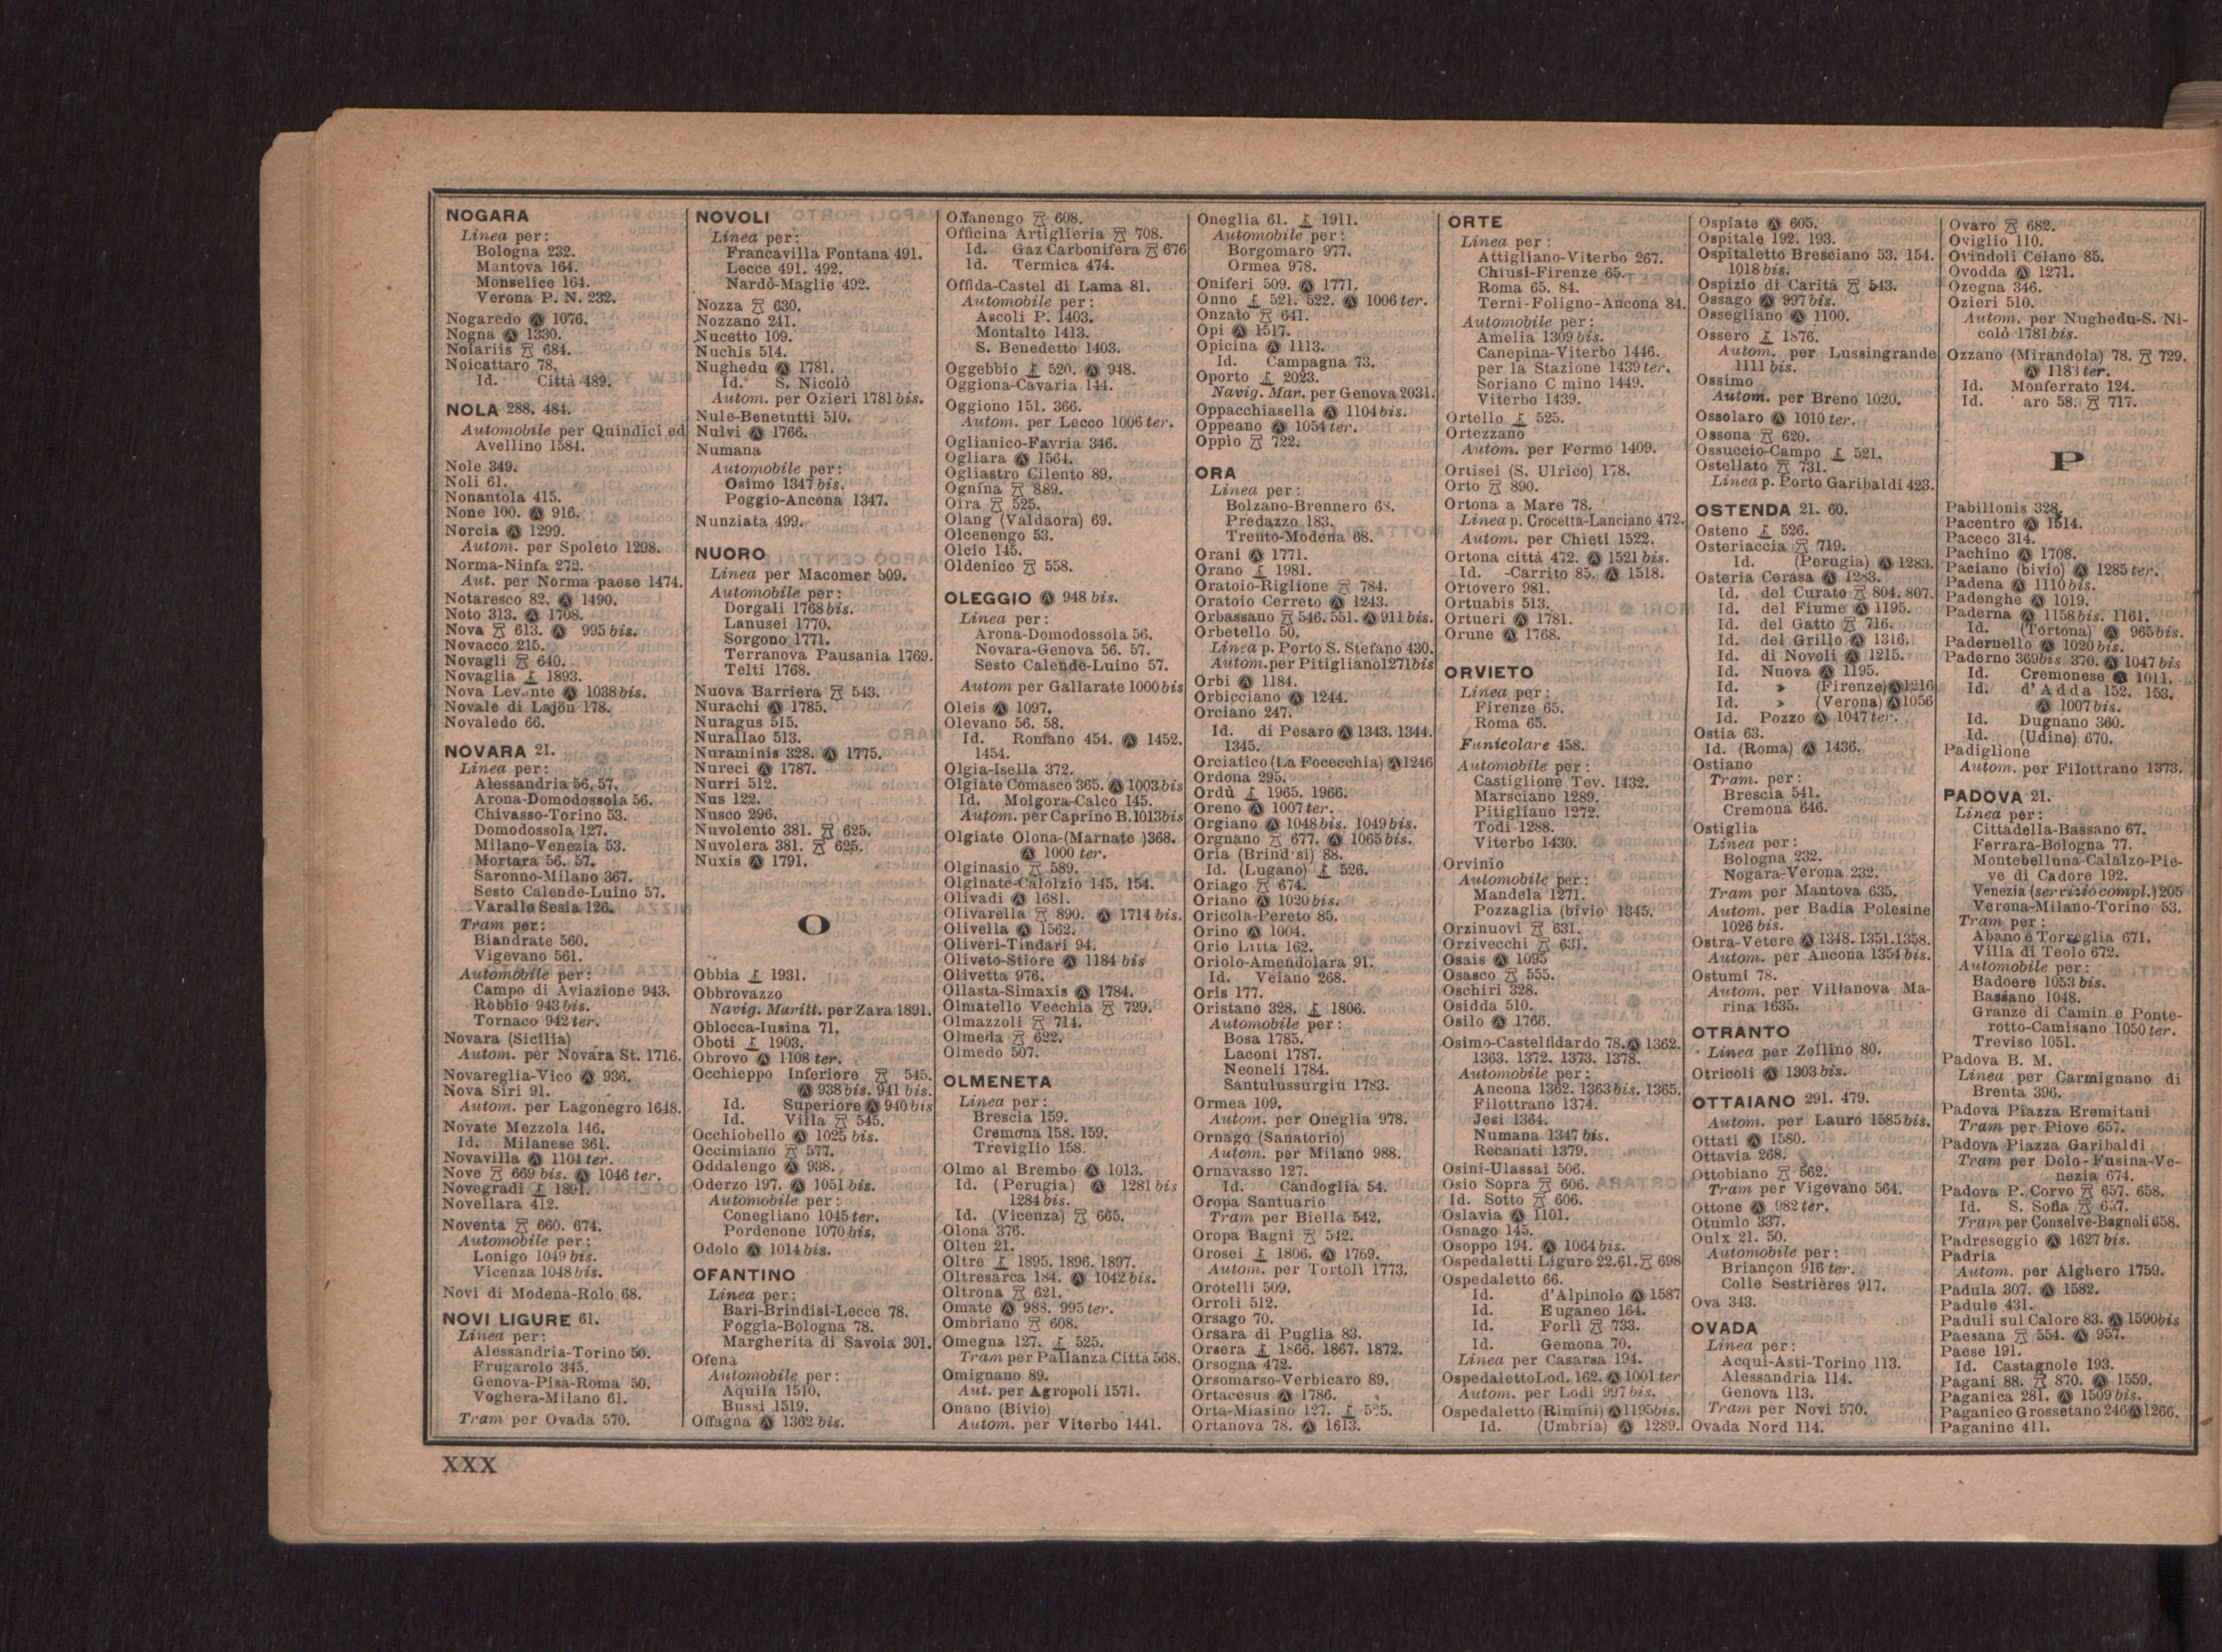 NOGARA
Linea per:
Bologna 232.
Mantova 164.
Monselice 164.
Verona P. N. 232.
Nogaredo Ⓐ 1076.
Nogna Ⓐ 1330.
Nolariis 684.
Noicattaro 78.
Id. Città 489.
NOLA 288. 484.
Automobile per Quindici ed
Avellino 1584.
Nole 349.
Noli 61.
Nonantola 415.
None 100. Ⓐ 916.
Norcia Ⓐ 1299.
Autom. per Spoleto 1298.
Norma-Ninfa 272.
Aut. per Norma paese 1474.
Notaresco 82. Ⓐ 1490.
Noto 313. Ⓐ 1708.
Nova 613. Ⓐ 995 bis.
Novacco 215.
Novagli 640.
Novaglia 1893.
Nova Levante Ⓐ 1038 bis.
Novale di Lajön 178.
Novaledo 66.
NOVARA 21.
Linea per:
Alessandria 56. 57.
Arona-Domodossola 56.
Chivasso-Torino 53.
Domodossola 127.
Milano-Venezia 53.
Mortara 56. 57.
Saronno-Milano 367.
Sesto Calende-Luino 57.
Varallo Sesia 126.
Tram per:
Biandrate 560.
Vigevano 561.
Automobile per:
Campo di Aviazione 943.
Robbio 943 bis.
Tornaco 942 ter.
Novara (Sicilia)
Autom. per Novara St. 1716.
Novareglia-Vico Ⓐ 936.
Nova Siri 91.
Autom. per Lagonegro 1648.
Novate Mezzola 146.
Id. Milanese 361.
Novavilla Ⓐ 1104 ter.
Nove 669 bis. Ⓐ 1046 ter.
Novegradi 1891.
Novellara 412.
Noventa 660. 674.
Automobile per:
Lonigo 1049 bis.
Vicenza 1048 bis.
Novi di Modena-Rolo 68.
NOVI LIGURE 61.
Linea per:
Alessandria-Torino 50.
Frugarolo 345.
Genova-Pisa-Roma 50.
Voghera-Milano 61.
Tram per Ovada 570.
NOVOLI
Linea per:
Francavilla Fontana 491.
Lecce 491. 492.
Nardò-Maglie 492.
Nozza 630.
Nozzano 241.
Nucetto 109.
Nuchis 514.
Nughedu Ⓐ 1781.
Id. S. Nicolò
Autom. per Ozieri 1781 bis.
Nule-Benetutti 510.
Nulvi Ⓐ 1766.
Numana
Automobile per:
Osimo 1347 bis.
Poggio-Ancona 1347.
Nunziata 499.
NUORO
Linea per Macomer 509.
Automobile per:
Dorgali 1768 bis.
Lanusei 1770.
Sorgono 1771.
Terranova Pausania 1769.
Telti 1768.
Nuova Barriera 543.
Nurachi Ⓐ 1785.
Nuragus 515.
Nurallao 513.
Nuraminis 328. Ⓐ 1775.
Nureci Ⓐ 1787.
Nurri 512.
Nus 122.
Nusco 296.
Nuvolento 381. 625.
Nuvolera 381. 625.
Nuxis Ⓐ 1791.
O
Obbia 1931.
Obbrovazzo
Navig. Maritt. per Zara 1891.
Oblocca-Iusina 71.
Oboti 1903.
Obrovo Ⓐ 1108 ter.
Occhieppo Inferiore 545.
Ⓐ 938 bis. 941 bis.
Id. Superiore Ⓐ 940 bis
Id. Villa 545.
Occhiobello Ⓐ 1025 bis.
Occimiano 577.
Oddalengo Ⓐ 938.
Oderzo 197. Ⓐ 1051 bis.
Automobile per:
Conegliano 1045 ter.
Pordenone 1070 bis.
Odolo Ⓐ 1014 bis.
OFANTINO
Linea per:
Bari-Brindisi-Lecce 78.
Foggia-Bologna 78.
Margherita di Savoia 301.
Ofena
Automobile per:
Aquila 1510.
Bussi 1519.
Offagna Ⓐ 1362 bis.
Offanengo 608.
Officina Artiglieria 708.
Id. Gaz Carbonifera 676
Id. Termica 474.
Offida-Castel di Lama 81.
Automobile per:
Ascoli P. 1403.
Montalto 1413.
S. Benedetto 1403.
Oggebbio 520. Ⓐ 948.
Oggiona-Cavaria 144.
Oggiono 151. 366.
Autom. per Lecco 1006 ter.
Oglianico-Favria 346.
Ogliara Ⓐ 1564.
Ogliastro Cilento 89.
Ognina 889.
Oira 525.
Olang (Valdaora) 69.
Olcenengo 53.
Olcio 145.
Oldenico 558.
OLEGGIO Ⓐ 948 bis.
Linea per:
Arona-Domodossola 56.
Novara-Genova 56. 57.
Sesto Calende-Luino 57.
Autom per Gallarate 1000 bis
Oleis Ⓐ 1097.
Olevano 56. 58.
Id. Romano 454. Ⓐ 1452.
1454.
Olgia-Isella 372.
Olgiate Comasco 365. Ⓐ 1003 bis
Id. Molgora-Calco 145.
Autom. per Caprino B. 1013 bis
Olgiate Olona-(Marnate )368.
Ⓐ 1000 ter.
Olginasio 589.
Olginate-Calolzio 145. 154.
Olivadi Ⓐ 1681.
Olivarella 890. Ⓐ 1714 bis.
Olivella Ⓐ 1562.
Oliveri-Tindari 94.
Oliveto-Stiore Ⓐ 1184 bis
Olivetta 976.
Ollasta-Simaxis Ⓐ 1784.
Olmatello Vecchia 729.
Olmazzoli 714.
Olmeda 622.
Olmedo 507.
OLMENETA
Linea per:
Brescia 159.
Cremona 158. 159.
Treviglio 158.
Olmo al Brembo Ⓐ 1013.
Id. (Perugia) Ⓐ 1281 bis
1284 bis.
Id. (Vicenza) 665.
Olona 376.
Olten 21.
Oltre 1895. 1896. 1897.
Oltresarca 184. Ⓐ 1042 bis.
Oltrona 621.
Omate Ⓐ 988. 995 ter.
Ombriano 608.
Omegna 127. 525.
Tram per Pallanza Città 568.
Omignano 89.
Aut. per Agropoli 1571.
Onano (Bivio)
Autom. per Viterbo 1441.
Oneglia 61. 1911.
Automobile per:
Borgomaro 977.
Ormea 978.
Oniferi 509. Ⓐ 1771.
Onno 521. 522. Ⓐ 1006 ter.
Onzato 641.
Opi Ⓐ 1517.
Opicina Ⓐ 1113.
Id. Campagna 73.
Oporto 2023.
Navig. Mar. per Genova 2031.
Oppacchiasella Ⓐ 1104 bis.
Oppeano Ⓐ 1054 ter.
Oppio 722.
ORA
Linea per:
Bolzano-Brennero 68.
Predazzo 183.
Trento-Modena 68.
Orani Ⓐ 1771.
Orano 1981.
Oratoio-Riglione 784.
Oratoio Cerreto Ⓐ 1243.
Orbassano 546. 551. Ⓐ 911 bis.
Orbetello 50.
Linea p. Porto S. Stefano 430.
Autom. per Pitigliano 1271 bis
Orbi Ⓐ 1184.
Orbicciano Ⓐ 1244.
Orciano 247.
Id. di Pesaro Ⓐ 1343. 1344.
1345.
Orciatico (La Focecchia) Ⓐ 1246
Ordona 295.
Ordù 1965. 1966.
Oreno Ⓐ 1007 ter.
Orgiano Ⓐ 1048 bis. 1049 bis.
Orgnano 677. Ⓐ 1065 bis.
Oria (Brind si) 88.
Id. (Lugano) 526.
Oriago 674.
Oriano Ⓐ 1020 bis.
Oricola-Pereto 85.
Orino Ⓐ 1004.
Orio Litta 162.
Oriolo-Amendolara 91.
Id. Veiano 268.
Oris 177.
Oristano 328. 1806.
Automobile per:
Bosa 1785.
Laconi 1787.
Neoneli 1784.
Santulussurgiu 1783.
Ormea 109.
Autom. per Oneglia 978.
Ornago (Sanatorio)
Autom. per Milano 988.
Ornavasso 127.
Id. Candoglia 54.
Oropa Santuario
Tram per Biella 542.
Oropa Bagni 542.
Orosei 1806. Ⓐ 1769.
Autom. per Tortolì 1773.
Orotelli 509.
Orroli 512.
Orsago 70.
Orsara di Puglia 83.
Orsera 1866. 1867. 1872.
Orsogna 472.
Orsomarso-Verbicaro 89.
Ortacesus Ⓐ 1786.
Orta-Miasino 127. 525.
Ortanova 78. Ⓐ 1613.
ORTE
Linea per:
Attigliano-Viterbo 267.
Chiusi-Firenze 65.
Roma 65. 84.
Terni-Foligno-Ancona 84.
Automobile per:
Amelia 1309 bis.
Canepina-Viterbo 1446.
per la Stazione 1439 ter.
Soriano C mino 1449.
Viterbo 1439.
Ortello 525.
Ortezzano
Autom. per Fermo 1409.
Ortisei (S. Ulrico) 178.
Orto 890.
Ortona a Mare 78.
Linea p. Crocetta-Lanciano 472.
Autom. per Chieti 1522.
Ortona città 472. Ⓐ 1521 bis.
Id. -Carrito 85. Ⓐ 1518.
Ortovero 981.
Ortuabis 513.
Ortueri Ⓐ 1781.
Orune Ⓐ 1768.
ORVIETO
Linea per:
Firenze 65.
Roma 65.
Funicolare 458.
Automobile per:
Castiglione Tev. 1432.
Marsciano 1289.
Pitigliano 1272.
Todi 1288.
Viterbo 1430.
Orvinio
Automobile per:
Mandela 1271.
Pozzaglia (bivio) 1345.
Orzinuovi 631.
Orzivecchi 631.
Osais Ⓐ 1095
Osasco 555.
Oschiri 328.
Osidda 510.
Osilo Ⓐ 1766.
Osimo-Castelfidardo 78. Ⓐ 1362.
1363. 1372. 1373. 1378.
Automobile per:
Ancona 1362. 1363 bis. 1365.
Filottrano 1374.
Jesi 1364.
Numana 1347 bis.
Recanati 1379.
Osini-Ulassai 506.
Osio Sopra 606.
Id. Sotto 606.
Oslavia Ⓐ 1101.
Osnago 145.
Osoppo 194. Ⓐ 1064 bis.
Ospedaletti Ligure 22.61. 698
Ospedaletto 66.
Id. d'Alpinolo Ⓐ 1587
Id. Euganeo 164.
Id. Forlì 733.
Id. Gemona 70.
Linea per Casarsa 194.
Ospedaletto Lod. 162. Ⓐ 1001 ter
Autom. per Lodi 997 bis.
Ospedaletto (Rimini) Ⓐ 1195 bis.
Id. (Umbria) Ⓐ 1289.
Ospiate Ⓐ 605.
Ospitale 192. 193.
Ospitaletto Bresciano 53. 154.
1018 bis.
Ospizio di Carità 543.
Ossago Ⓐ 997 bis.
Ossegliano Ⓐ 1100.
Ossero 1876.
Autom. per Lussingrande
1111 bis.
Ossimo
Autom. per Breno 1020.
Ossolaro Ⓐ 1010 ter.
Ossona 620.
Ossuccio-Campo 521.
Ostellato 731.
Linea p. Porto Garibaldi 423.
OSTENDA 21. 60.
Osteno 526.
Osteriaccia 719.
Id. (Perugia) Ⓐ 1283.
Osteria Cerasa Ⓐ 1283.
Id. del Curato 804. 807.
Id. del Fiume Ⓐ 1195.
Id. del Gatto 716.
Id. del Grillo Ⓐ 1316.
Id. di Novoli Ⓐ 1215.
Id. Nuova Ⓐ 1195.
Id. » (Firenze) Ⓐ 1216
Id. » (Verona) Ⓐ 1056
Id. Pozzo Ⓐ 1047 ter.
Ostia 63.
Id. (Roma) Ⓐ 1436.
Ostiano
Tram. per:
Brescia 541.
Cremona 646.
Ostiglia
Linea per:
Bologna 232.
Nogara-Verona 232.
Tram per Mantova 635.
Autom. per Badia Polesine
1026 bis.
Ostra-Vetere Ⓐ 1348. 1351. 1358.
Autom. per Ancona 1354 bis.
Ostumi 78.
Autom. per Villanova Ma-
rina 1635.
OTRANTO
Linea per Zollino 80.
Otricoli Ⓐ 1303 bis.
OTTAIANO 291. 479.
Autom. per Lauro 1585 bis.
Ottati Ⓐ 1580.
Ottavia 268.
Ottobiano 562.
Tram per Vigevano 564.
Ottone Ⓐ 982 ter.
Otumlo 337.
Oulx 21. 50.
Automobile per:
Briançon 916 ter.
Colle Sestrières 917.
Ova 343.
OVADA
Linea per:
Acqui-Asti-Torino 113.
Alessandria 114.
Genova 113.
Tram per Novi 570.
Ovada Nord 114.
Ovaro 682.
Oviglio 110.
Ovindoli Celano 85.
Ovodda Ⓐ 1271.
Ozegna 346.
Ozieri 510.
Autom. per Nughedu-S. Ni-
colò 1781 bis.
Ozzano (Mirandola) 78. 729.
Ⓐ 1183 ter.
Id. Monferrato 124.
Id. aro 58. 717.
P
Pabillonis 328.
Pacentro Ⓐ 1514.
Paceco 314.
Pachino Ⓐ 1708.
Paciano (bivio) Ⓐ 1285 ter.
Padena Ⓐ 1110 bis.
Padenghe Ⓐ 1019.
Paderna Ⓐ 1158 bis. 1161.
Id. (Tortona) Ⓐ 965 bis.
Padernello Ⓐ 1020 bis.
Paderno 369 bis. 370. Ⓐ 1047 bis
Id. Cremonese Ⓐ 1011.
Id. d'Adda 152. 153.
Ⓐ 1007 bis.
Id. Dugnano 360.
Id. (Udine) 670.
Padiglione
Autom. per Filottrano 1373.
PADOVA 21.
Linea per:
Cittadella-Bassano 67.
Ferrara-Bologna 77.
Montebelluna-Calalzo-Pie-
ve di Cadore 192.
Venezia (servizio compl.) 205
Verona-Milano-Torino 53.
Tram per:
Abano e Torreglia 671.
Villa di Teolo 672.
Automobile per:
Badoere 1053 bis.
Bassano 1048.
Granze di Camin e Ponte-
rotto-Camisano 1050 ter.
Treviso 1051.
Padova B. M.
Linea per Carmignano di
Brenta 396.
Padova Piazza Eremitani
Tram per Piove 657.
Padova Piazza Garibaldi
Tram per Dolo-Fusina-Ve-
nezia 674.
Padova P. Corvo 657. 658.
Id. S. Sofia 657.
Tram per Conselve-Bagnoli 658.
Padreseggio Ⓐ 1627 bis.
Padria
Autom. per Alghero 1759.
Padula 307. Ⓐ 1582.
Padule 431.
Paduli sul Calore 83. Ⓐ 1590 bis
Paesana 554. Ⓐ 957.
Paese 191.
Id. Castagnole 193.
Pagani 88. 870. Ⓐ 1559.
Paganica 281. Ⓐ 1509 bis.
Paganico Grossetano 246 Ⓐ 1266.
Paganine 411.
XXX